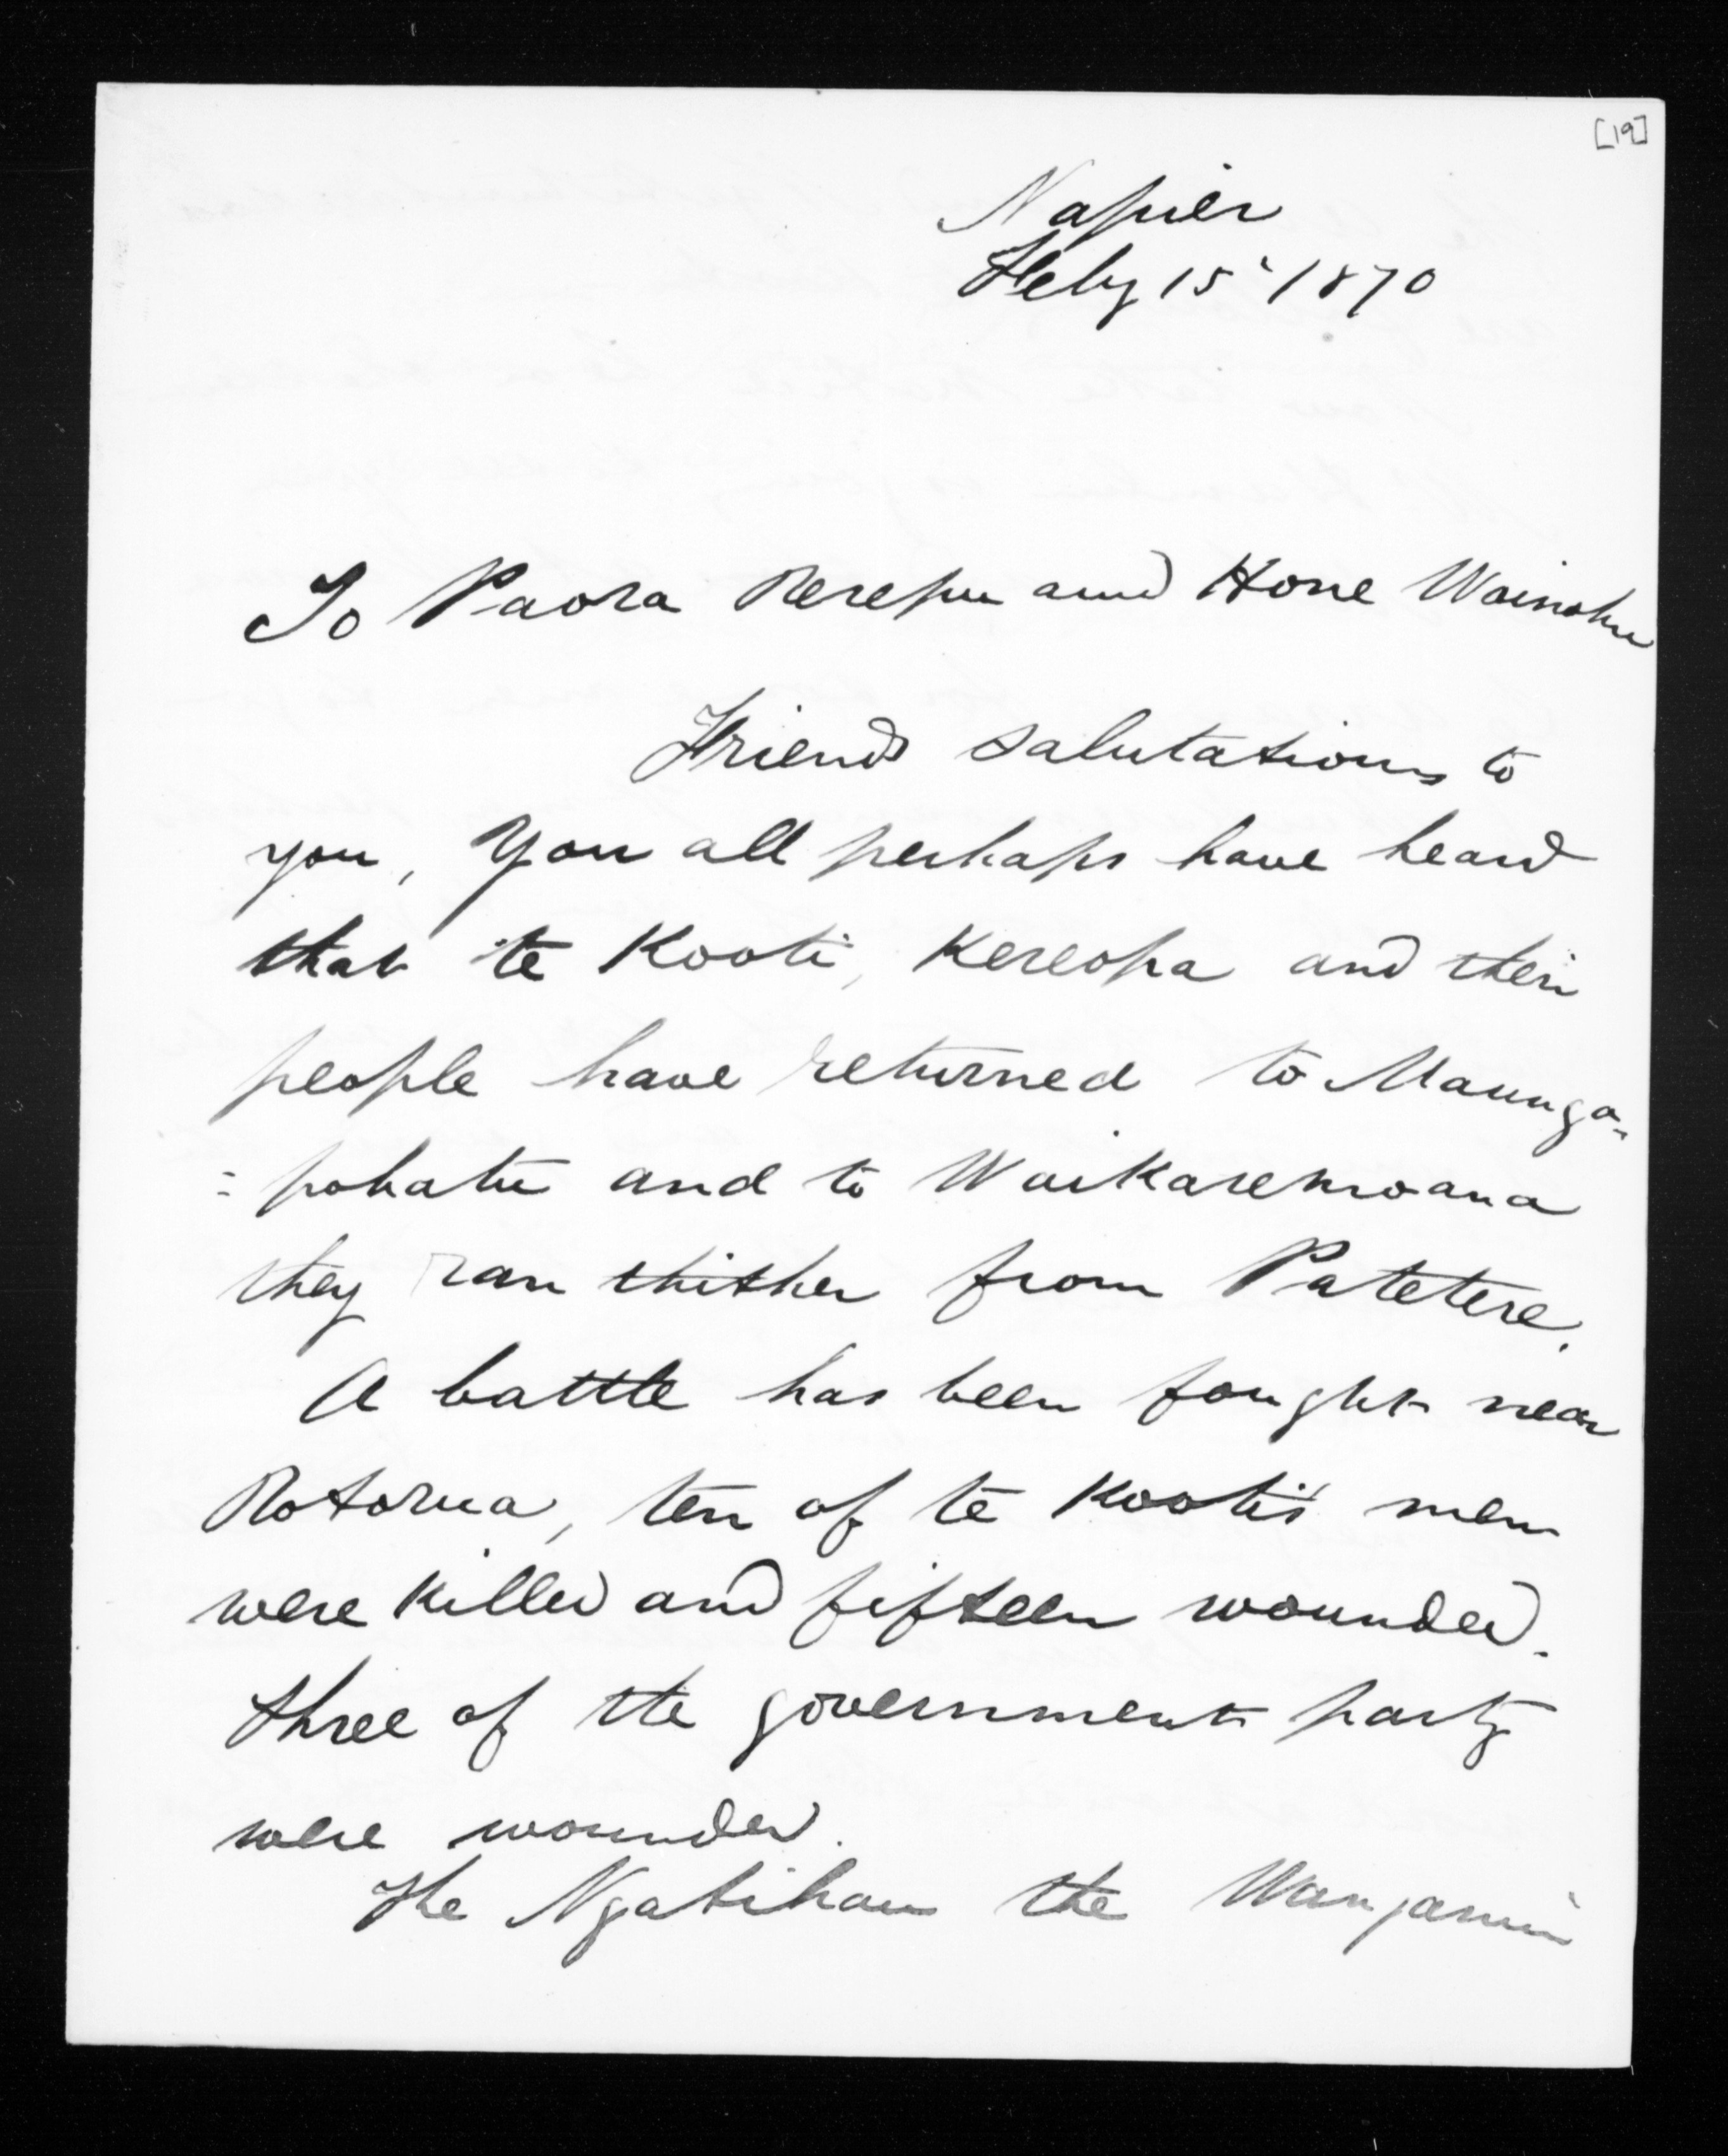 [19]
Napier
Feby 15 1870
To Paora Rerepu and Hone Wainohu
Friends salutations to
you, You all perhaps have heard
that te Kooti, Kereopa and their
people have returned to Maunga-
=pohatu and to Waikaremoana
they ran thither from Patetere.
A battle has been fought near
Rotorua, ten of te Kooti's men
were killed and fifteen wounded.
three of the government party
were wounded.
The Ngatihau the Wanganui